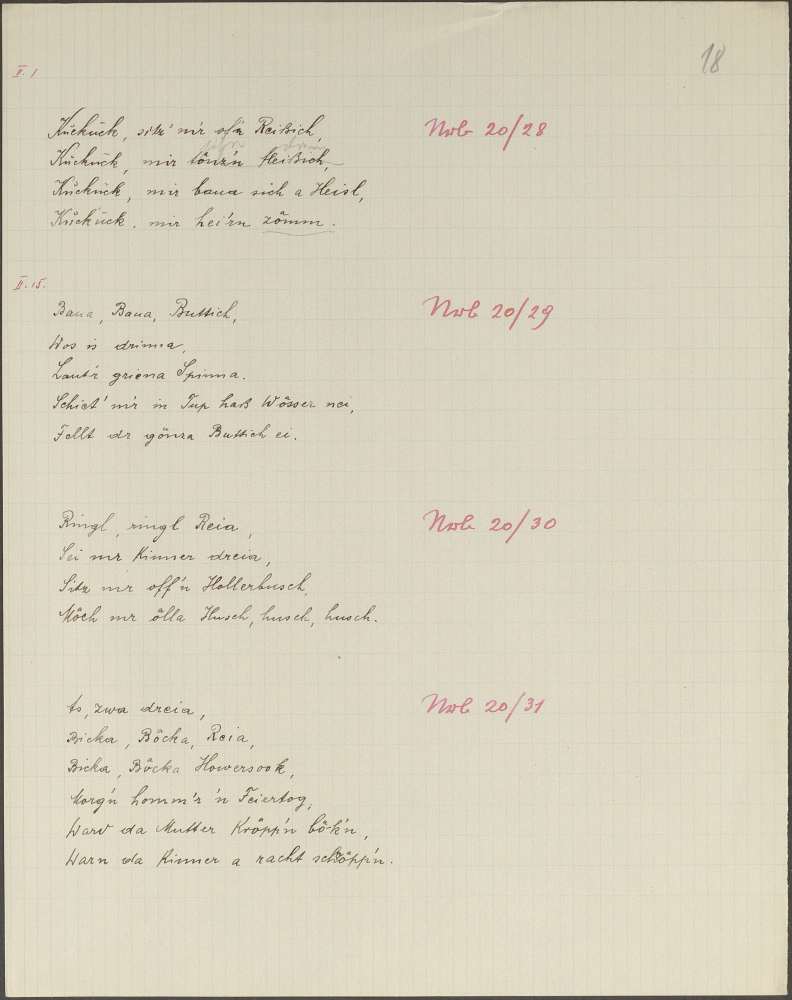 18
II. 1
Kuckuck, sitz' m'r ofn Reißich, Nrb 20/28
Kuckuck, mir tönz'n fleißich,
Kuckuck, mir baua sich a Heisl,
Kuckuck, mir hei'rn zömm.
II. 15.
Baua, Baua, Buttich, Nrb 20/29
Wos is drinna,
Laut'r griena Spinna.
Schiet' m'r in Tup haß Wösser nei,
Fellt dr gönza Buttich ei.
Ringl, ringl Reia, Nrb 20/30
Sei mr Kinner dreia,
Sitz mr off'n Hollerbusch,
Möch mr ölla Husch, husch, husch.
As, zwa dreia, Nrb 20/31
Bicka, Böcka, Reia,
Bicka, Böcka Howersook,
Morg'n homm'r 'n Feiertog,
Ward da Mutter Kröpp'n bök'n,
Warn da Kinner a racht schöpp'n.